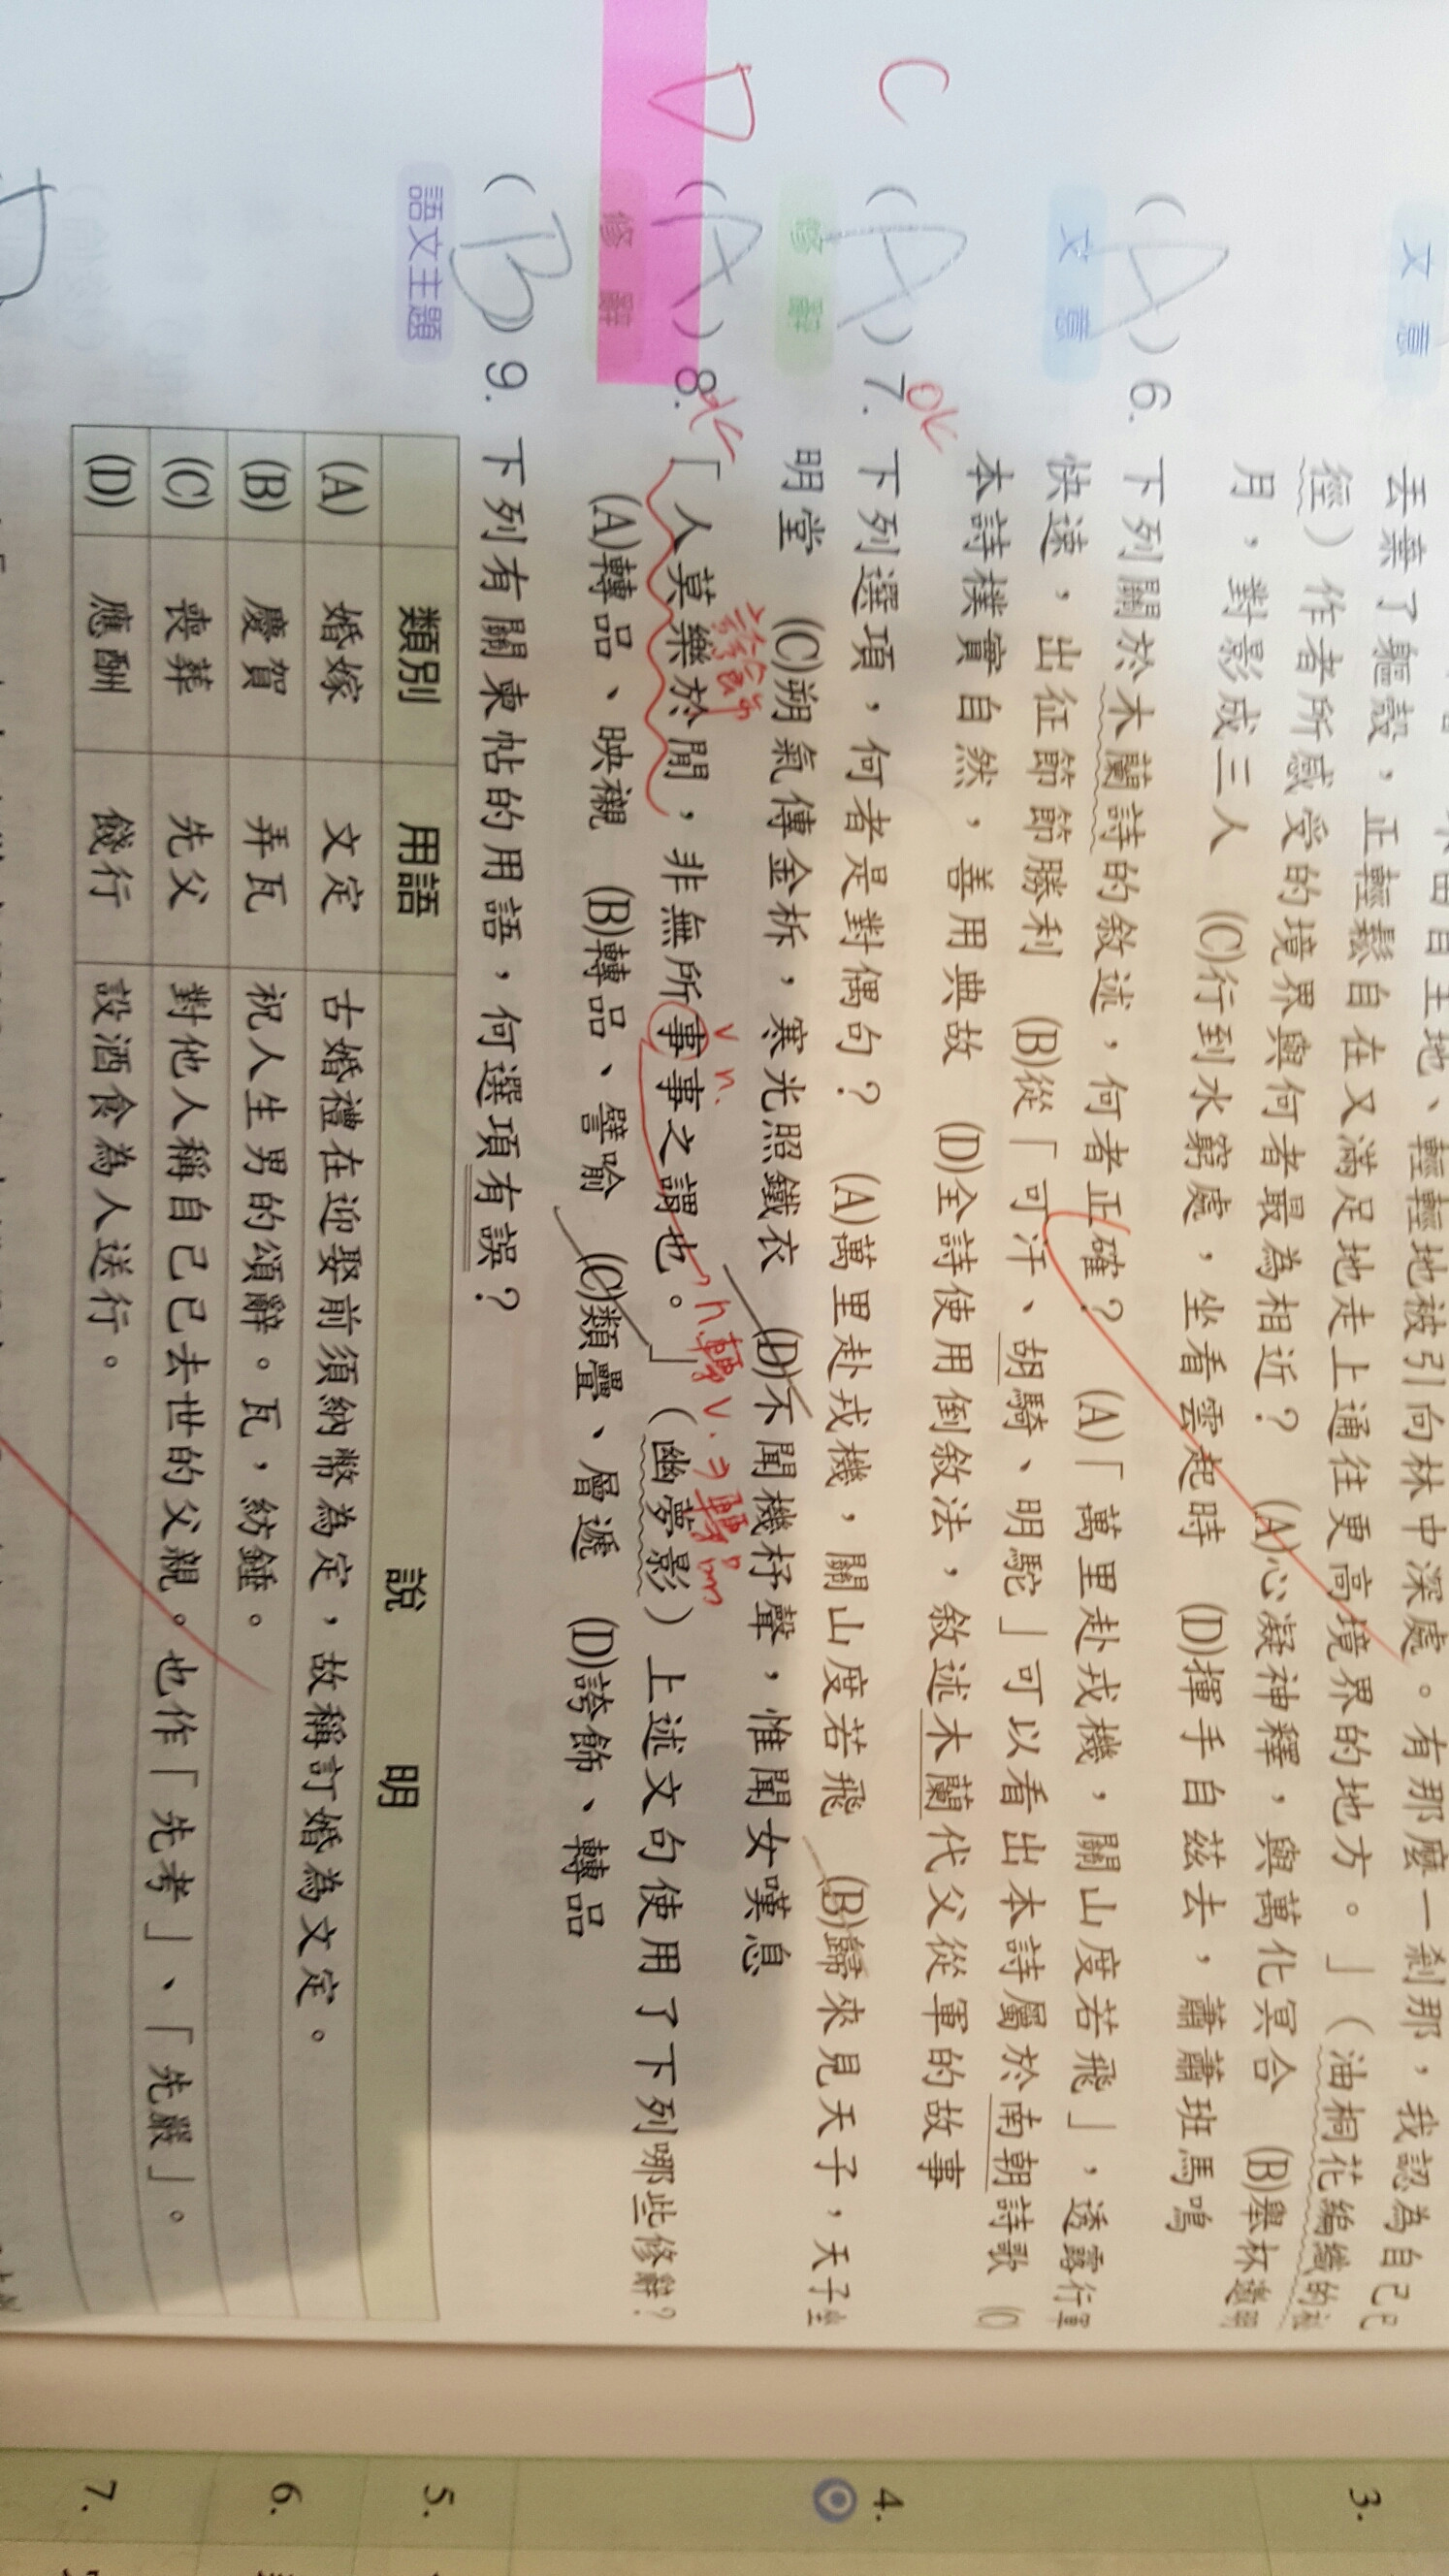 丟棄了軀殼，正輕鬆自在又滿足地走上通往更高境界的地方。」（油桐花編織的
經）作者所感受的境界與何者最為相近？ (A)心凝神釋，與萬化冥合 (B)舉杯邀明
月，對影成三人 (C)行到水窮處，坐看雲起時 (D)揮手自茲去，蕭蕭班馬鳴
文意
(A) 6. 下列關於木蘭詩的敘述，何者正確？ (A)「萬里赴戎機，關山度若飛」，透露行軍
快速，出征節節勝利 (B)從「可汗、胡騎、明駝」可以看出本詩屬於南朝詩歌 (C)
本詩樸實自然，善用典故 (D)全詩使用倒敘法，敘述木蘭代父從軍的故事
文意
C (A) 7. 下列選項，何者是對偶句？ (A)萬里赴戎機，關山度若飛 (B)歸來見天子，天子坐
ok
明堂 (C)朔氣傳金柝，寒光照鐵衣 (D)不聞機杼聲，惟聞女嘆息
修辭
D (A) 8. 「人莫樂於閒，非無所事事之謂也。」（幽夢影）上述文句使用了下列哪些修辭？
ok
誇飾
v n.
n轉v.⇒轉品
(A)轉品、映襯 (B)轉品、譬喻 (C)類疊、層遞 (D)誇飾、轉品
修辭
(B) 9. 下列有關柬帖的用語，何選項有誤？
語文主題
類別 用語 說明
(A) 婚嫁 文定 古婚禮在迎娶前須納幣為定，故稱訂婚為文定。
(B) 慶賀 弄瓦 祝人生男的頌辭。瓦，紡錘。
(C) 喪葬 先父 對他人稱自己已去世的父親。也作「先考」、「先嚴」。
(D) 應酬 餞行 設酒食為人送行。
3.
4.
5.
6.
7.